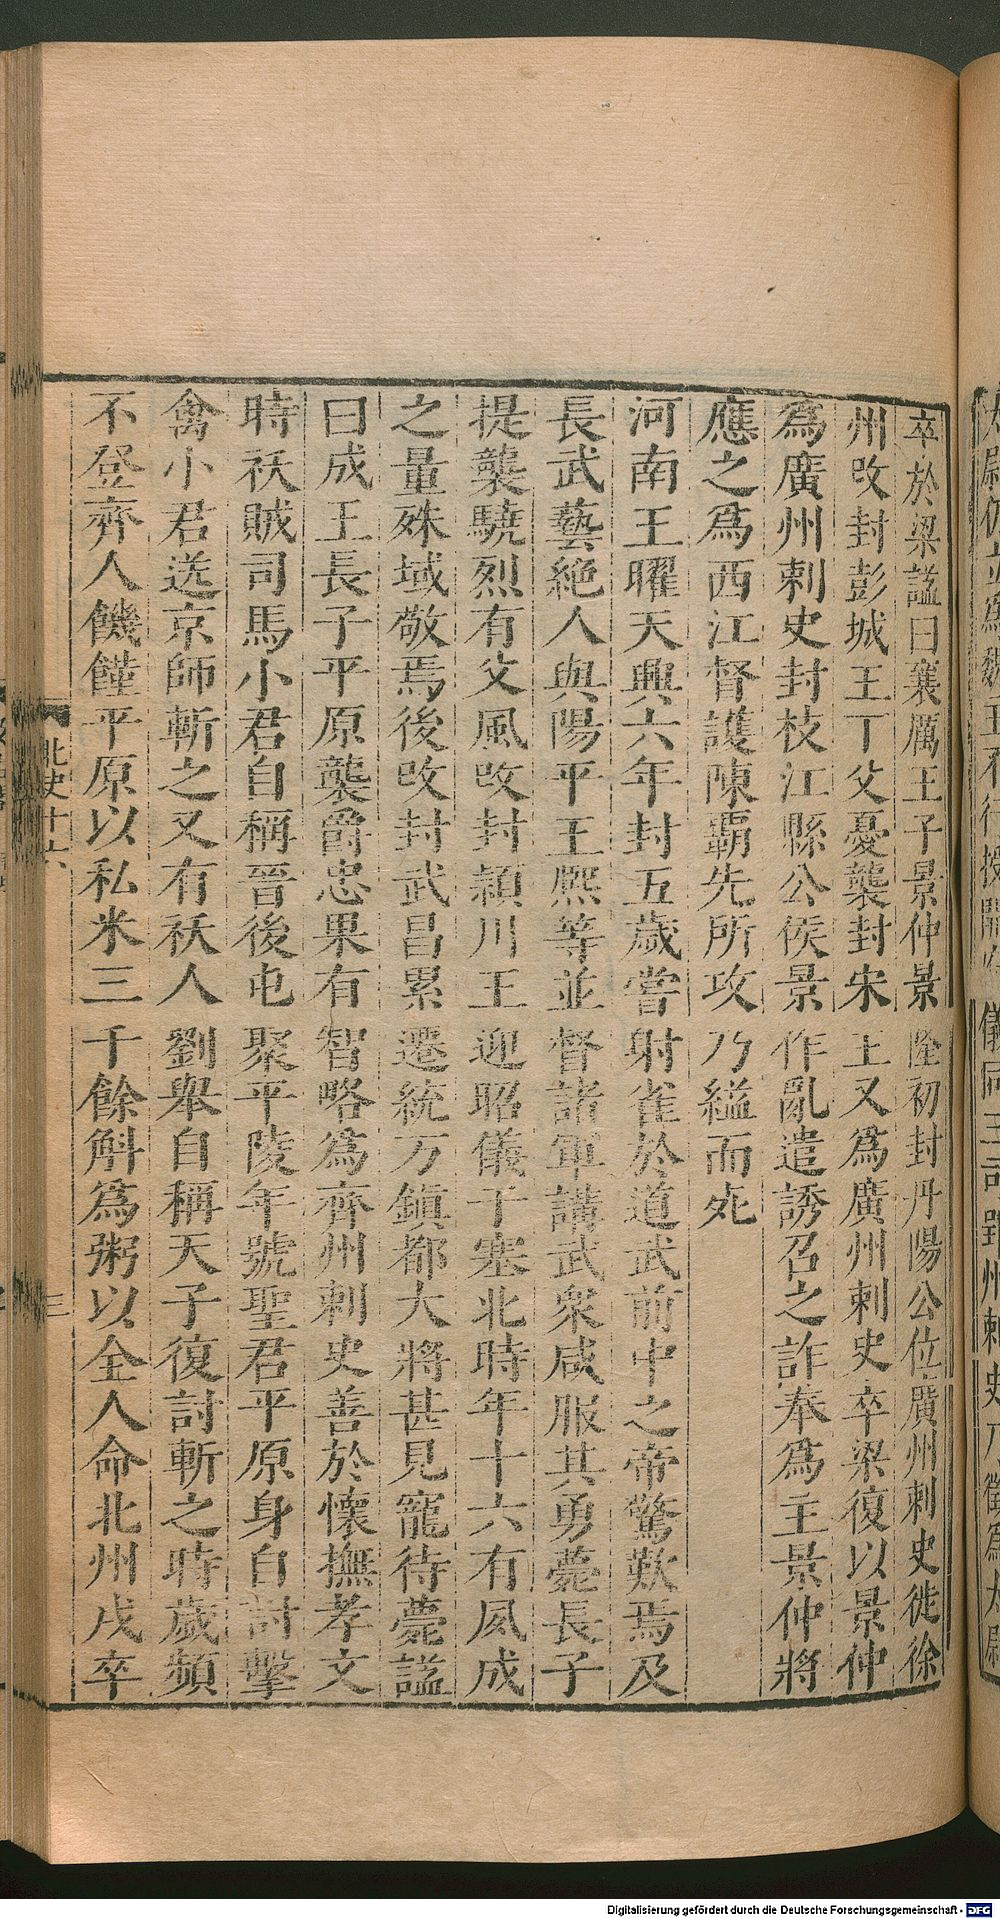 卒於梁謚曰襄厲王子景仲景隆初封丹陽公位廣州刺史徙徐
州改封彭城王丁父憂襲封宋王又爲廣州刺史卒梁復以景仲
爲廣州刺史封枝江縣公侯景作亂遣誘召之詐奉爲主景仲將
應之爲西江督護陳霸先所攻乃縊而死
河南王曜天興六年封五歲嘗射雀於道武前中之帝驚歎焉及
長武藝絶人與陽平王熈等並督諸軍講武衆咸服其勇薨長子
提襲驍烈有父風改封潁川王迎昭儀于塞北時年十六有夙成
之量殊域敬焉後改封武昌累遷統万鎮都大將甚見寵待薨謚
曰成王長子平原襲爵忠果有智略爲齊州刺史善於懷撫孝文
時祅賊司馬小君自稱晉後屯聚平陵年號聖君平原身自討擊
禽小君送京師斬之又有祅人劉舉自稱天子復討斬之時歲頻
不登齊人饑饉平原以私米三千餘斛爲粥以全人命北州戍卒
北史十六
三
Digitalisierung gefördert durch die Deutsche Forschungsgemeinschaft - DFG